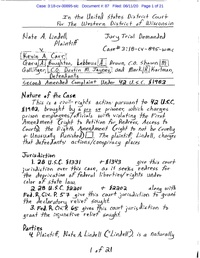 Case: 3:18-cv-00895-slc Document #: 87 Filed: 06/11/20 Page 1 of 21
In the United States District Court
For The Western District of Wisconsin
Nate A. Lindell,
Plaintiff
v.
Jury Trial Demanded
Case # 3:18-cv-895-wmc
Kevin A. Carr,
Gary A. Boughton, Brown, C.O. Shawn
Gallinger, C.O. Dustin and Mark Kartman,
Defendants
Second Amended Complaint Under 42 U.S.C. §1983
Nature of the Case
This is a civil-rights action pursuant to 42 U.S.C.
§1983, brought by a pro se prisoner, which charges
prison employees/officials with violating the First
Amendment (right to Petition for Redress, Access to
Courts), the Eighth Amendment (right to not be Cruelly
or Unusually Punished). The plaintiff, Lindell, charges
that Defendants' actions/conspiracy places
Jurisdiction
1. 28 U.S.C. §1331 + §1343 give this court
jurisdiction over this case, as it seeks redress for
the deprivation of federal liberties/rights under
color of state law.
2. 28 U.S.C. §2201 + §2202 along with
Fed. R. Civ. P. 57 give this court jurisdiction to grant
the declaratory relief sought.
3. Fed. R. Civ. P. 65 gives this court jurisdiction to
grant the injunctive relief sought.
Parties
4. Plaintiff, Nate A. Lindell ("Lindell") is a naturally
1 of 21